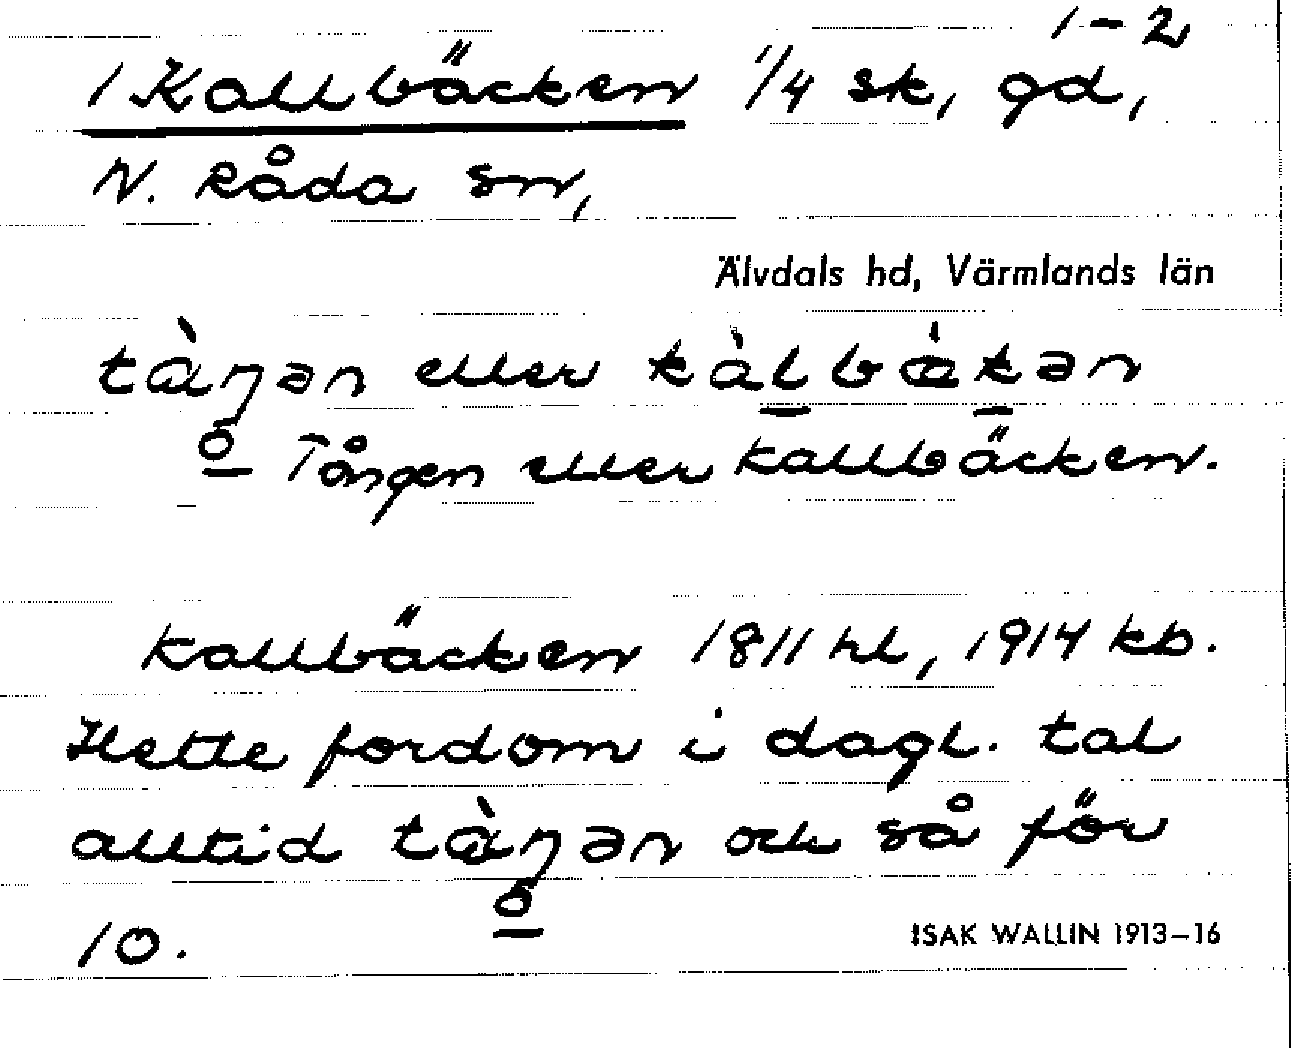 1-2
1 Kallbäcken 1/4 sk, gd,
N. Råda sn,
Älvdals hd, Värmlands län
tàŋən eller kàlbäkən
Tången eller Kallbäcken.
Kallbäcken 1811 hl, 1914 kb.
Hette fordom i dagl. tal
alltid tàŋən och så för
10.
ISAK WALLIN 1913–16